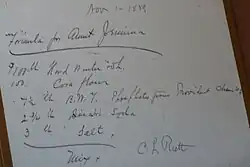 Nov 1-1889
Formula for Aunt Jemima
100 lb Hard Winter Wh.
100 Corn flour
7 1/2 lb B.W.T. Phosphate from Provident Chem
2 3/4 lb Bicarb Soda
3 lb Salt.
Mix.
C L Rutt